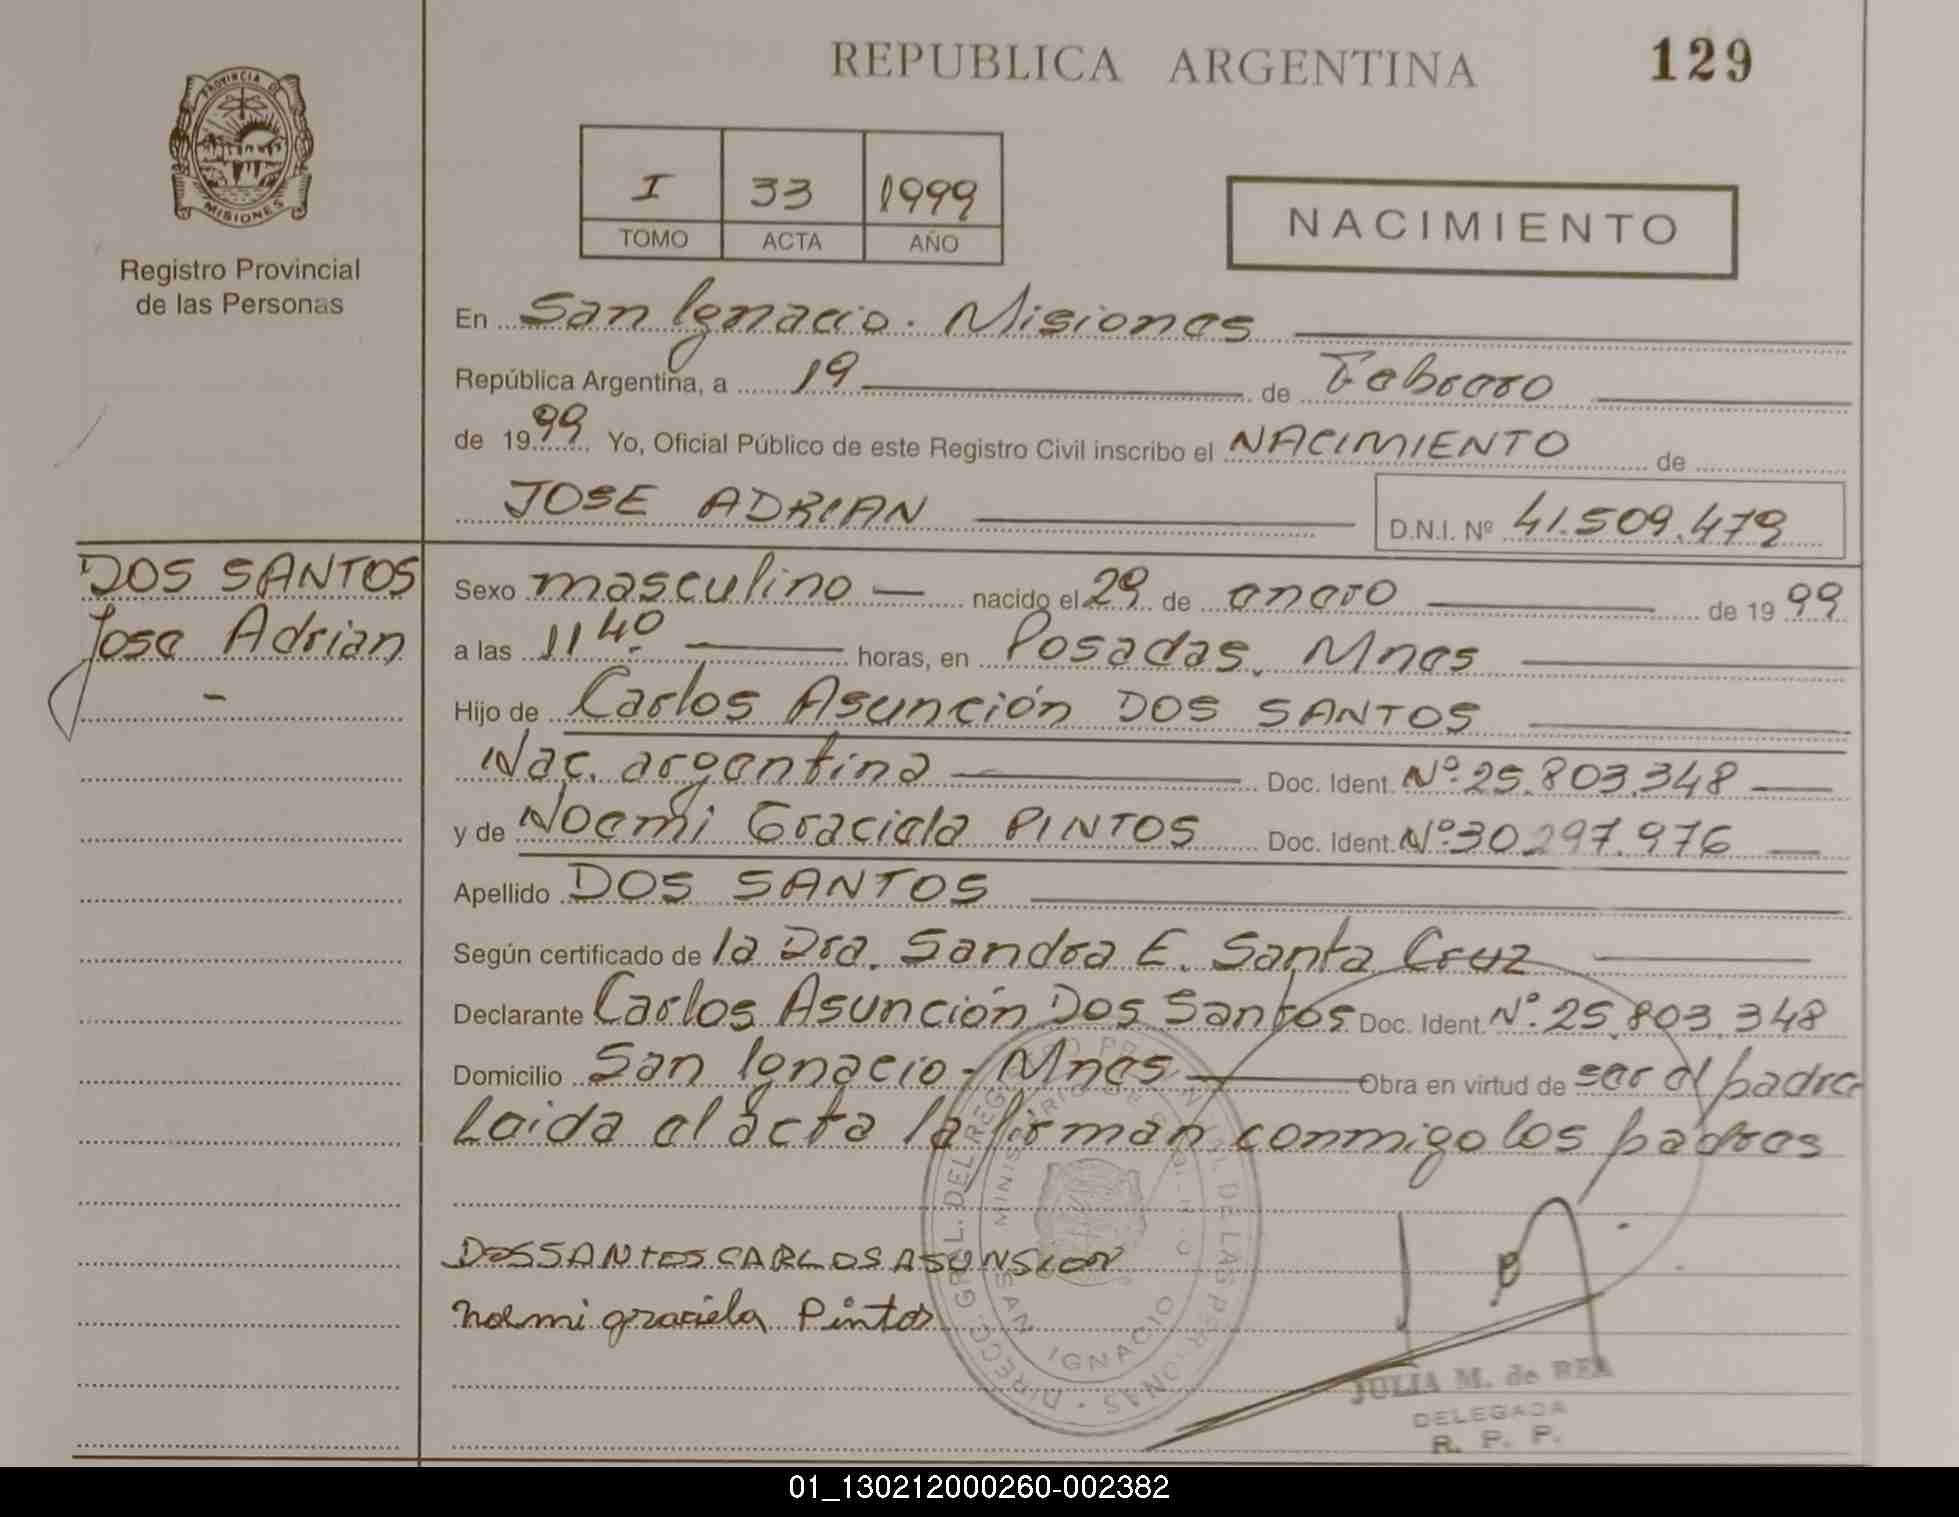 REPUBLICA ARGENTINA
129
PROVINCIA DE
MISIONES
Registro Provincial
de las Personas
I 33 1999
TOMO ACTA AÑO
NACIMIENTO
En San Ignacio. Misiones
República Argentina, a 19 de Febrero
de 1999 Yo, Oficial Público de este Registro Civil inscribo el NACIMIENTO de
JOSE ADRIAN D.N.I. Nº 41.509.479
DOS SANTOS
Jose Adrian
Sexo masculino nacido el 29 de enero de 1999
a las 11 40. horas, en Posadas. Mnes
Hijo de Carlos Asunción DOS SANTOS
Nac. argentina Doc. Ident. Nº 25.803.348
y de Noemi Graciela PINTOS Doc. Ident. Nº 30.297.976
Apellido DOS SANTOS
Según certificado de la Dra. Sandra E. Santa Cruz
Declarante Carlos Asunción Dos Santos Doc. Ident. Nº. 25.803.348
Domicilio San Ignacio - Mnes Obra en virtud de ser el padre
Leida el acta la firman conmigo los padres
DOS SANTOS CARLOS ASUNSION
noemi graciela Pintos
SAN IGNACIO
JULIA M. de REA
DELEGADA
R. P. P.
01_130212000260-002382